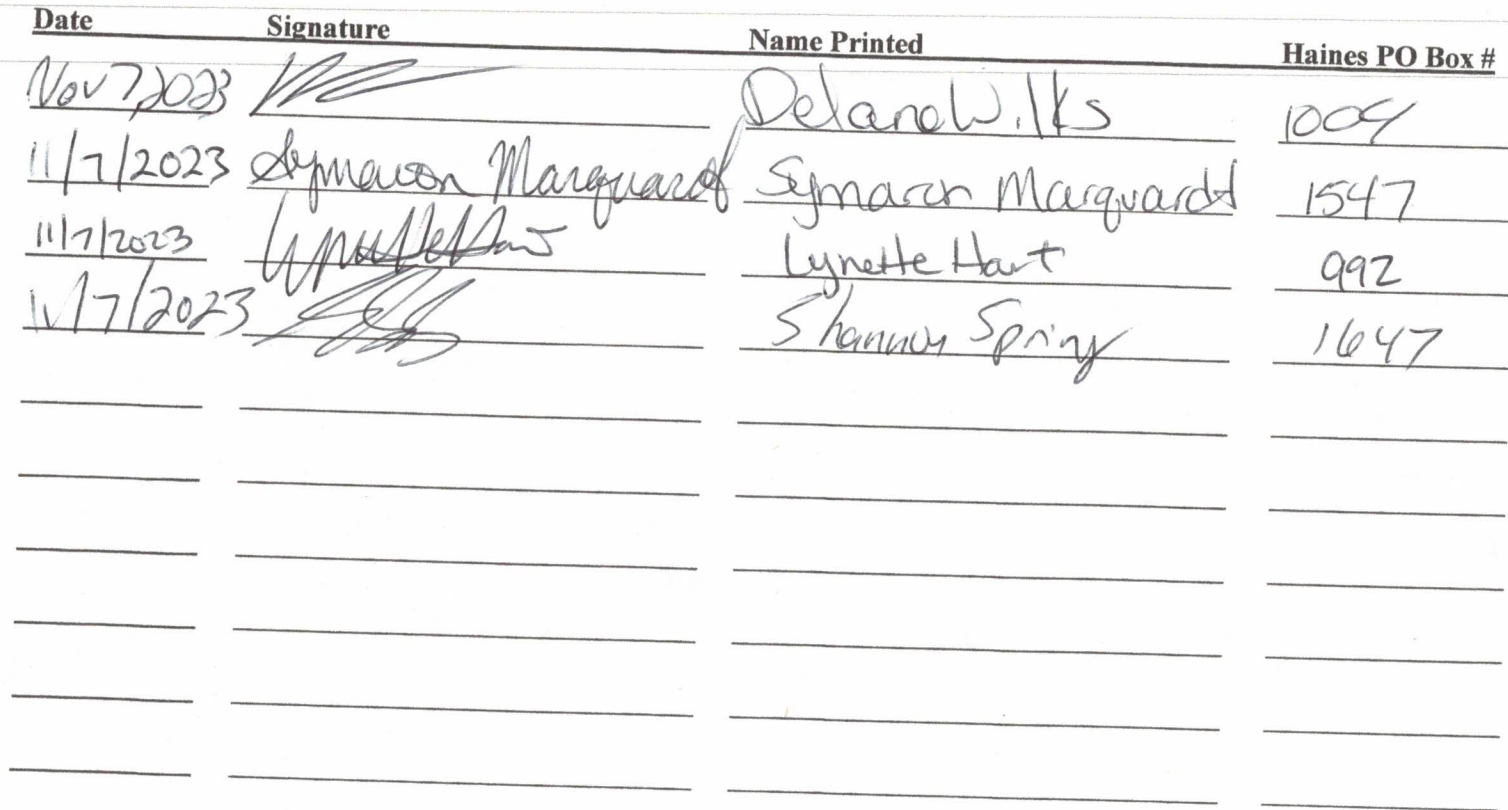 Date Signature Name Printed Haines PO Box #
Nov 7, 2023 Delane Wilks 1004
11/7/2023 Symaron Marquardt Symaron Marquardt 1547
11/7/2023 Lynette Hart Lynette Hart 992
11/7/2023 Shannon Spring 1647